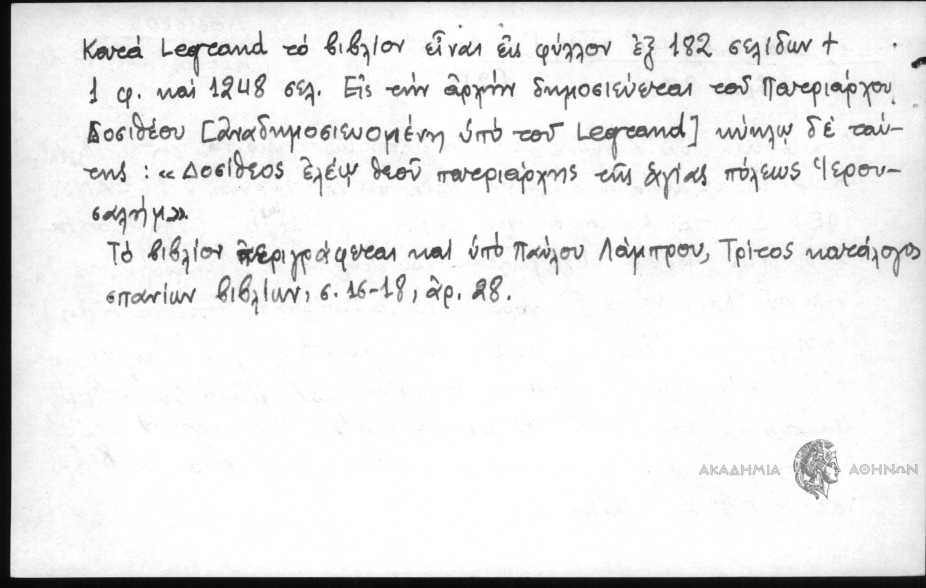 Κατά Legrand τό βιβλίον εἶναι εἰς φύλλον ἐξ 182 σελίδων +
1 φ. καί 1248 σελ. Εἰς τήν ἀρχήν δημοσιεύεται τοῦ Πατριάρχου
Δοσιθέου [ἀναδημοσιευομένη ὑπό τοῦ Legrand] κύκλῳ δέ ταύ-
της : « Δοσίθεος ἐλέῳ θεοῦ πατριάρχης τῆς ἁγίας πόλεως Ἱερου-
σαλήμ».
Τό βιβλίον περιγράφεται καί ὑπό Παύλου Λάμπρου, Τρίτος κατάλογος
σπανίων βιβλίων, σ. 16-18, ἀρ. 28.
ΑΚΑΔΗΜΙΑ ΑΘΗΝΩΝ